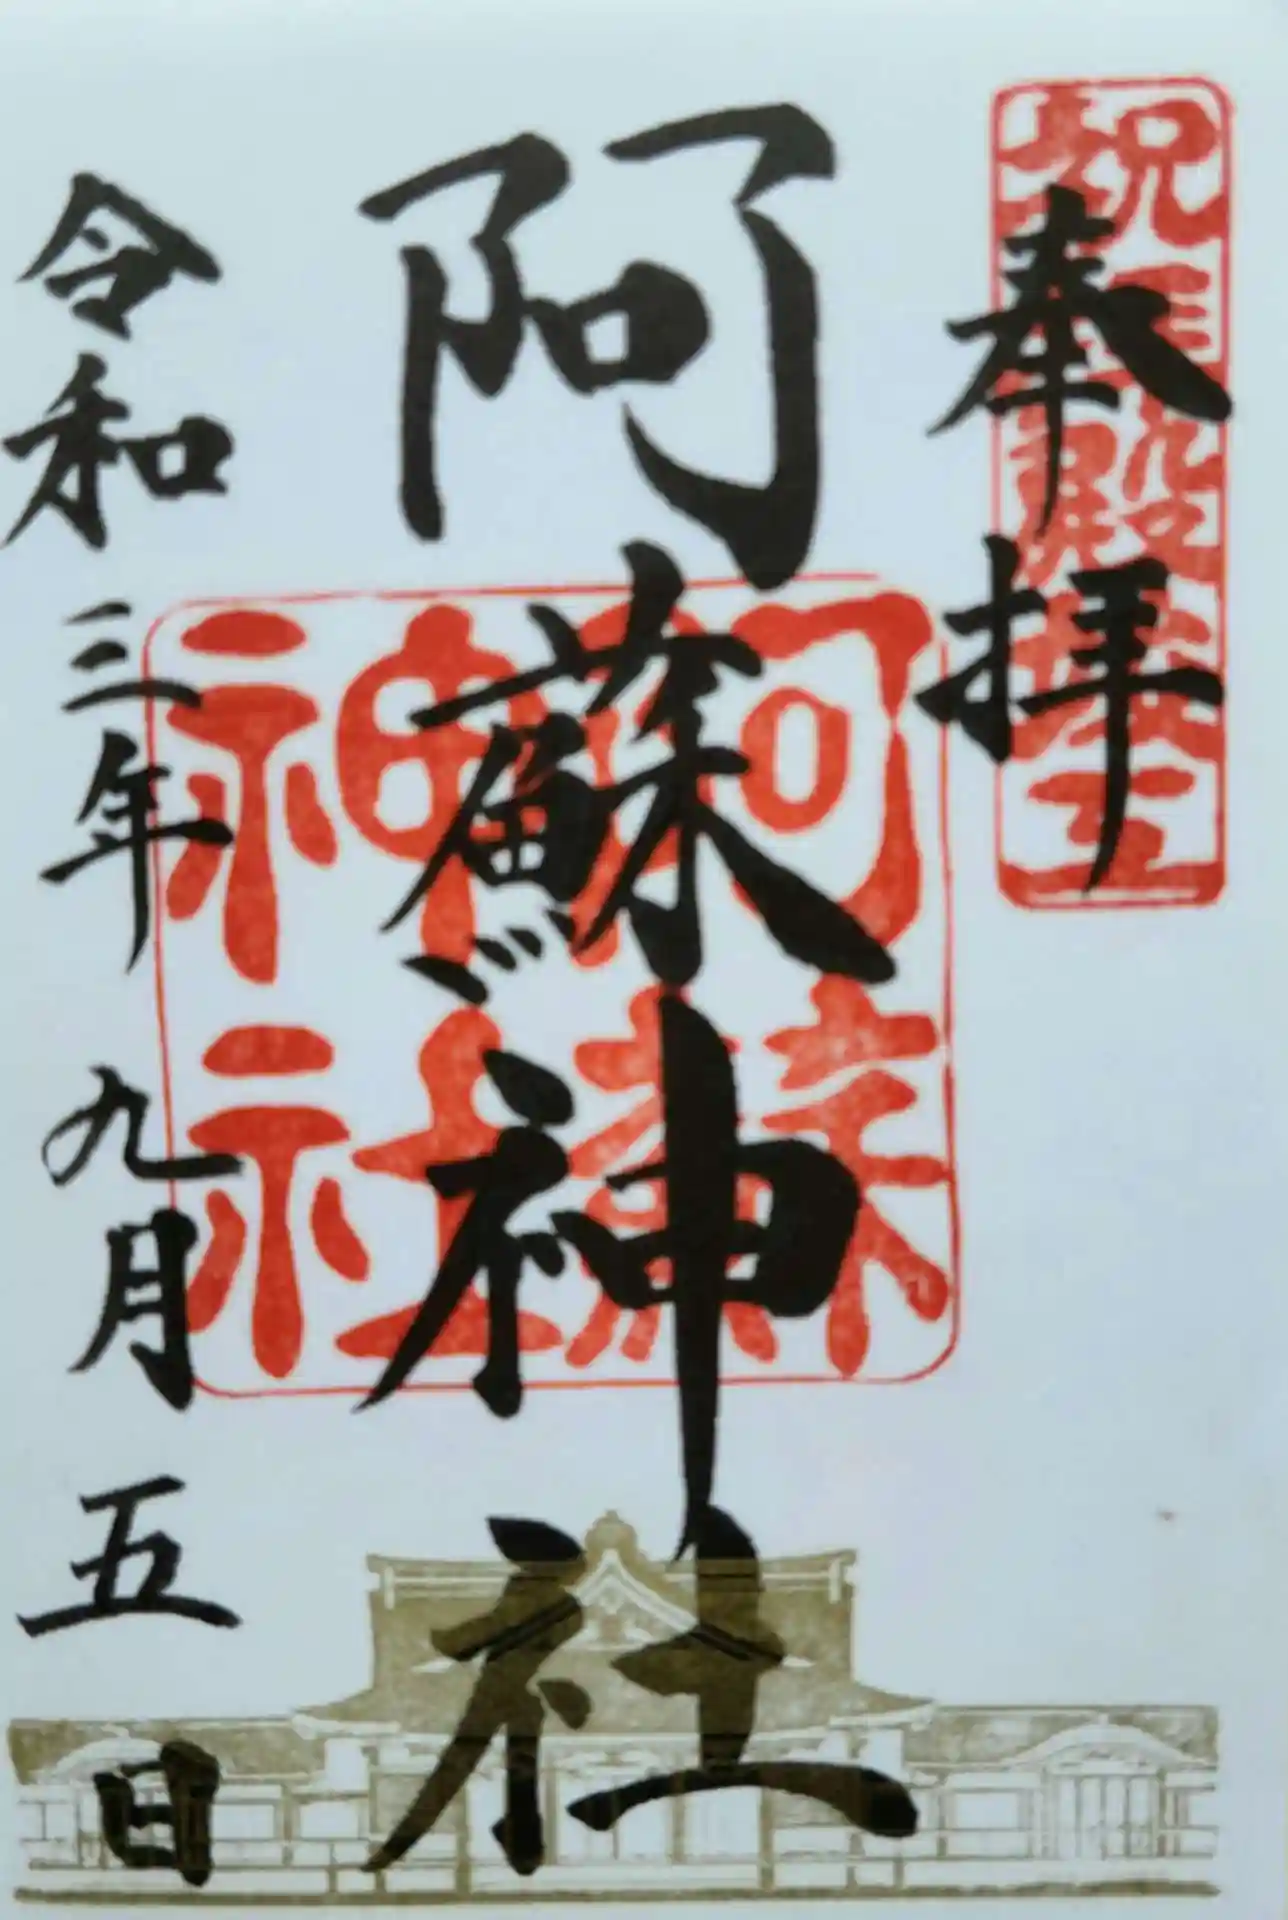 奉拝
祝拝殿竣工
阿蘇神社
阿蘇
神社
令和三年九月五日